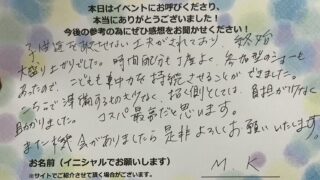 本日はイベントにお呼びくださり、
本当にありがとうございました!
今後の参考の為にぜひ感想をお聞かせください!
子供達を飽きさせない工夫がされており、終始
大盛り上がりでした。時間配分も丁度よく、参加型のショーも
あったので、こどもも集中力を持続させることができました。
こちらで準備するものも少なく、招く側としては、負担が少なく
助かりました。 コスパ最高だと思います。
また機会がありましたら是非よろしくお願いいたします。
お名前(イニシャルでお願いします)
M.K
※サイトでご紹介させて頂く場合がございます。